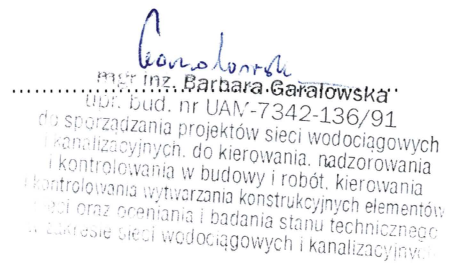 mgr inż. Barbara Garałowska
upr. bud. nr UAN-7342-136/91
do sporządzania projektów sieci wodociągowych
i kanalizacyjnych, do kierowania, nadzorowania
i kontrolowania w budowy i robót, kierowania
i kontrolowania wytwarzania konstrukcyjnych elementów
sieci oraz oceniania i badania stanu technicznego
w zakresie sieci wodociągowych i kanalizacyjnych